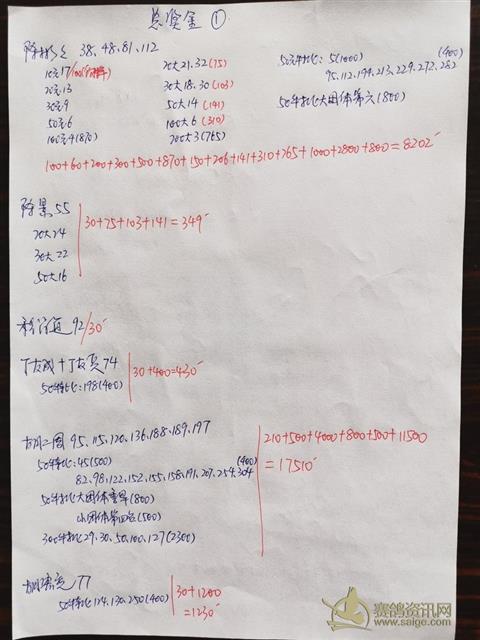 总奖金 ①
陈彬 38、48、81、112
10元17/100
20元13
30元9
50元6
100元4(870)
20大21、32(75)
30大18、30(103)
50大14 (141)
100大6 (310)
200大3(765)
50羽 5(1000) (400)
95、112、194、213、229、272、282
50 大团体第六(800)
100+60+200+300+500+870+150+206+141+310+765+1000+2800+800=8202
陈景55
20大24
30大22
50大16
30+75+103+141=349
92/30
丁友成+丁友兵74
50 : 198(400)
30+400=430
胡 95、115、120、136、188、189、197
50 :45(500) (400)
82、98、122、152、155、158、191、207、254、304
50 大团体 (800)
小团体第四名(500)
300 29、30、50、100、127(2300)
210+500+4000+800+500+11500
=17510
胡 77
50 114、130、250(400)
30+1200
=1230
赛鸽资讯网
www.saige.com